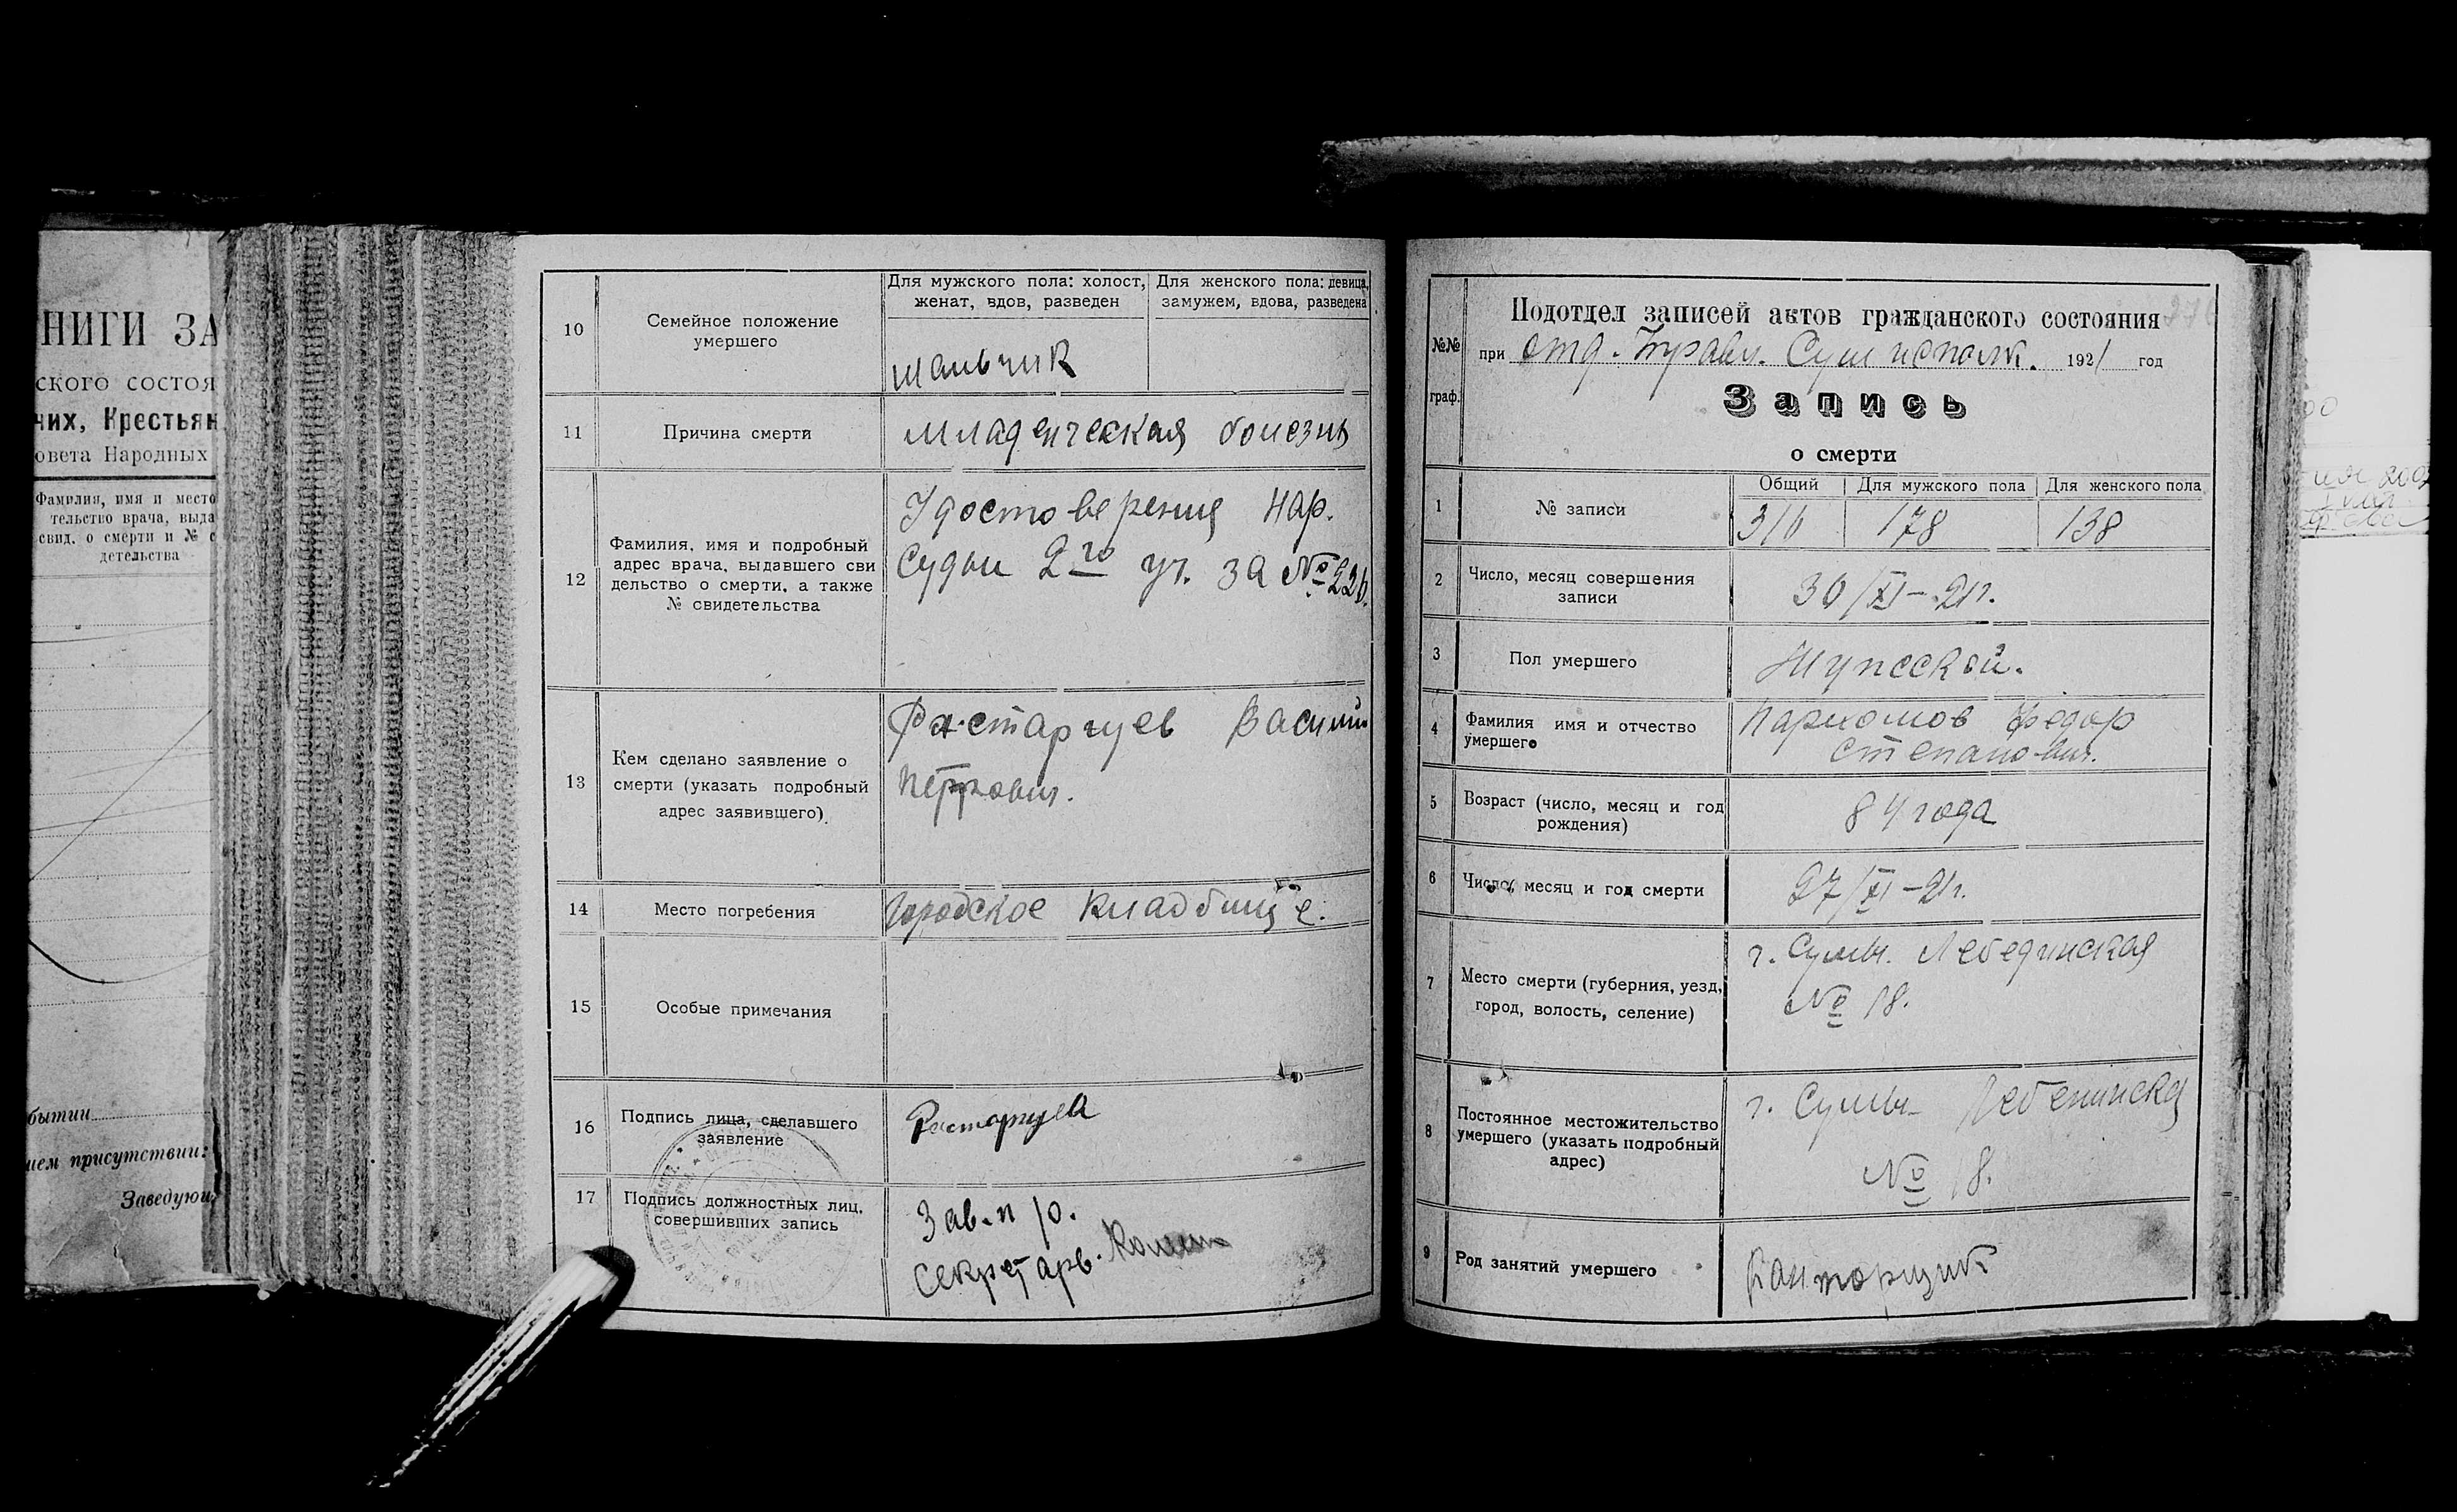 НИГИ ЗА
ского состоя
чих, Крестьян
овета Народных
Фамилия, имя и место
тельство врача, выда
свид. о смерти и № с
детельства
бытии
ием присутствии:
Заведую
10
Семейное положение
умершего
Для мужского пола: холост,
женат, вдов, разведен
Для женского пола: девица,
замужем, вдова, разведена
мальчик
11
Причина смерти
младенческая болезнь
12
Фамилия, имя и подробный
адрес врача, выдавшего сви
дельство о смерти, а также
№ свидетельства
Удостоверения Нар.
Судьи 2го уч. за № 226.
13
Кем сделано заявление о
смерти (указать подробный
адрес заявившего)
Расторгуев Василий
Петрович.
14
Место погребения
Городское кладбище.
15
Особые примечания
16
Подпись лица, сделавшего
заявление
Расторгуев
17
Подпись должностных лиц,
совершивших запись
Зав. п/о.
Секретарь.
№№
граф.
Подотдел записей актов гражданского состояния
при отд. Управл. Сум исполк. 1921 год
Запись
о смерти
1
№ записи
Общий
Для мужского пола
Для женского пола
316
178
138
2
Число, месяц совершения
записи
30/XI-21г.
3
Пол умершего
Мужеской.
4
Фамилия имя и отчество
умершего
Пархомов Федор
Степанович.
5
Возраст (число, месяц и год
рождения)
84 года
6
Число, месяц и год смерти
27/XI-21г.
7
Место смерти (губерния, уезд,
город, волость, селение)
г. Сумы. Лебединская
№ 18.
8
Постоянное местожительство
умершего (указать подробный
адрес)
г. Сумы
№ 18.
9
Род занятий умершего
Канторщик